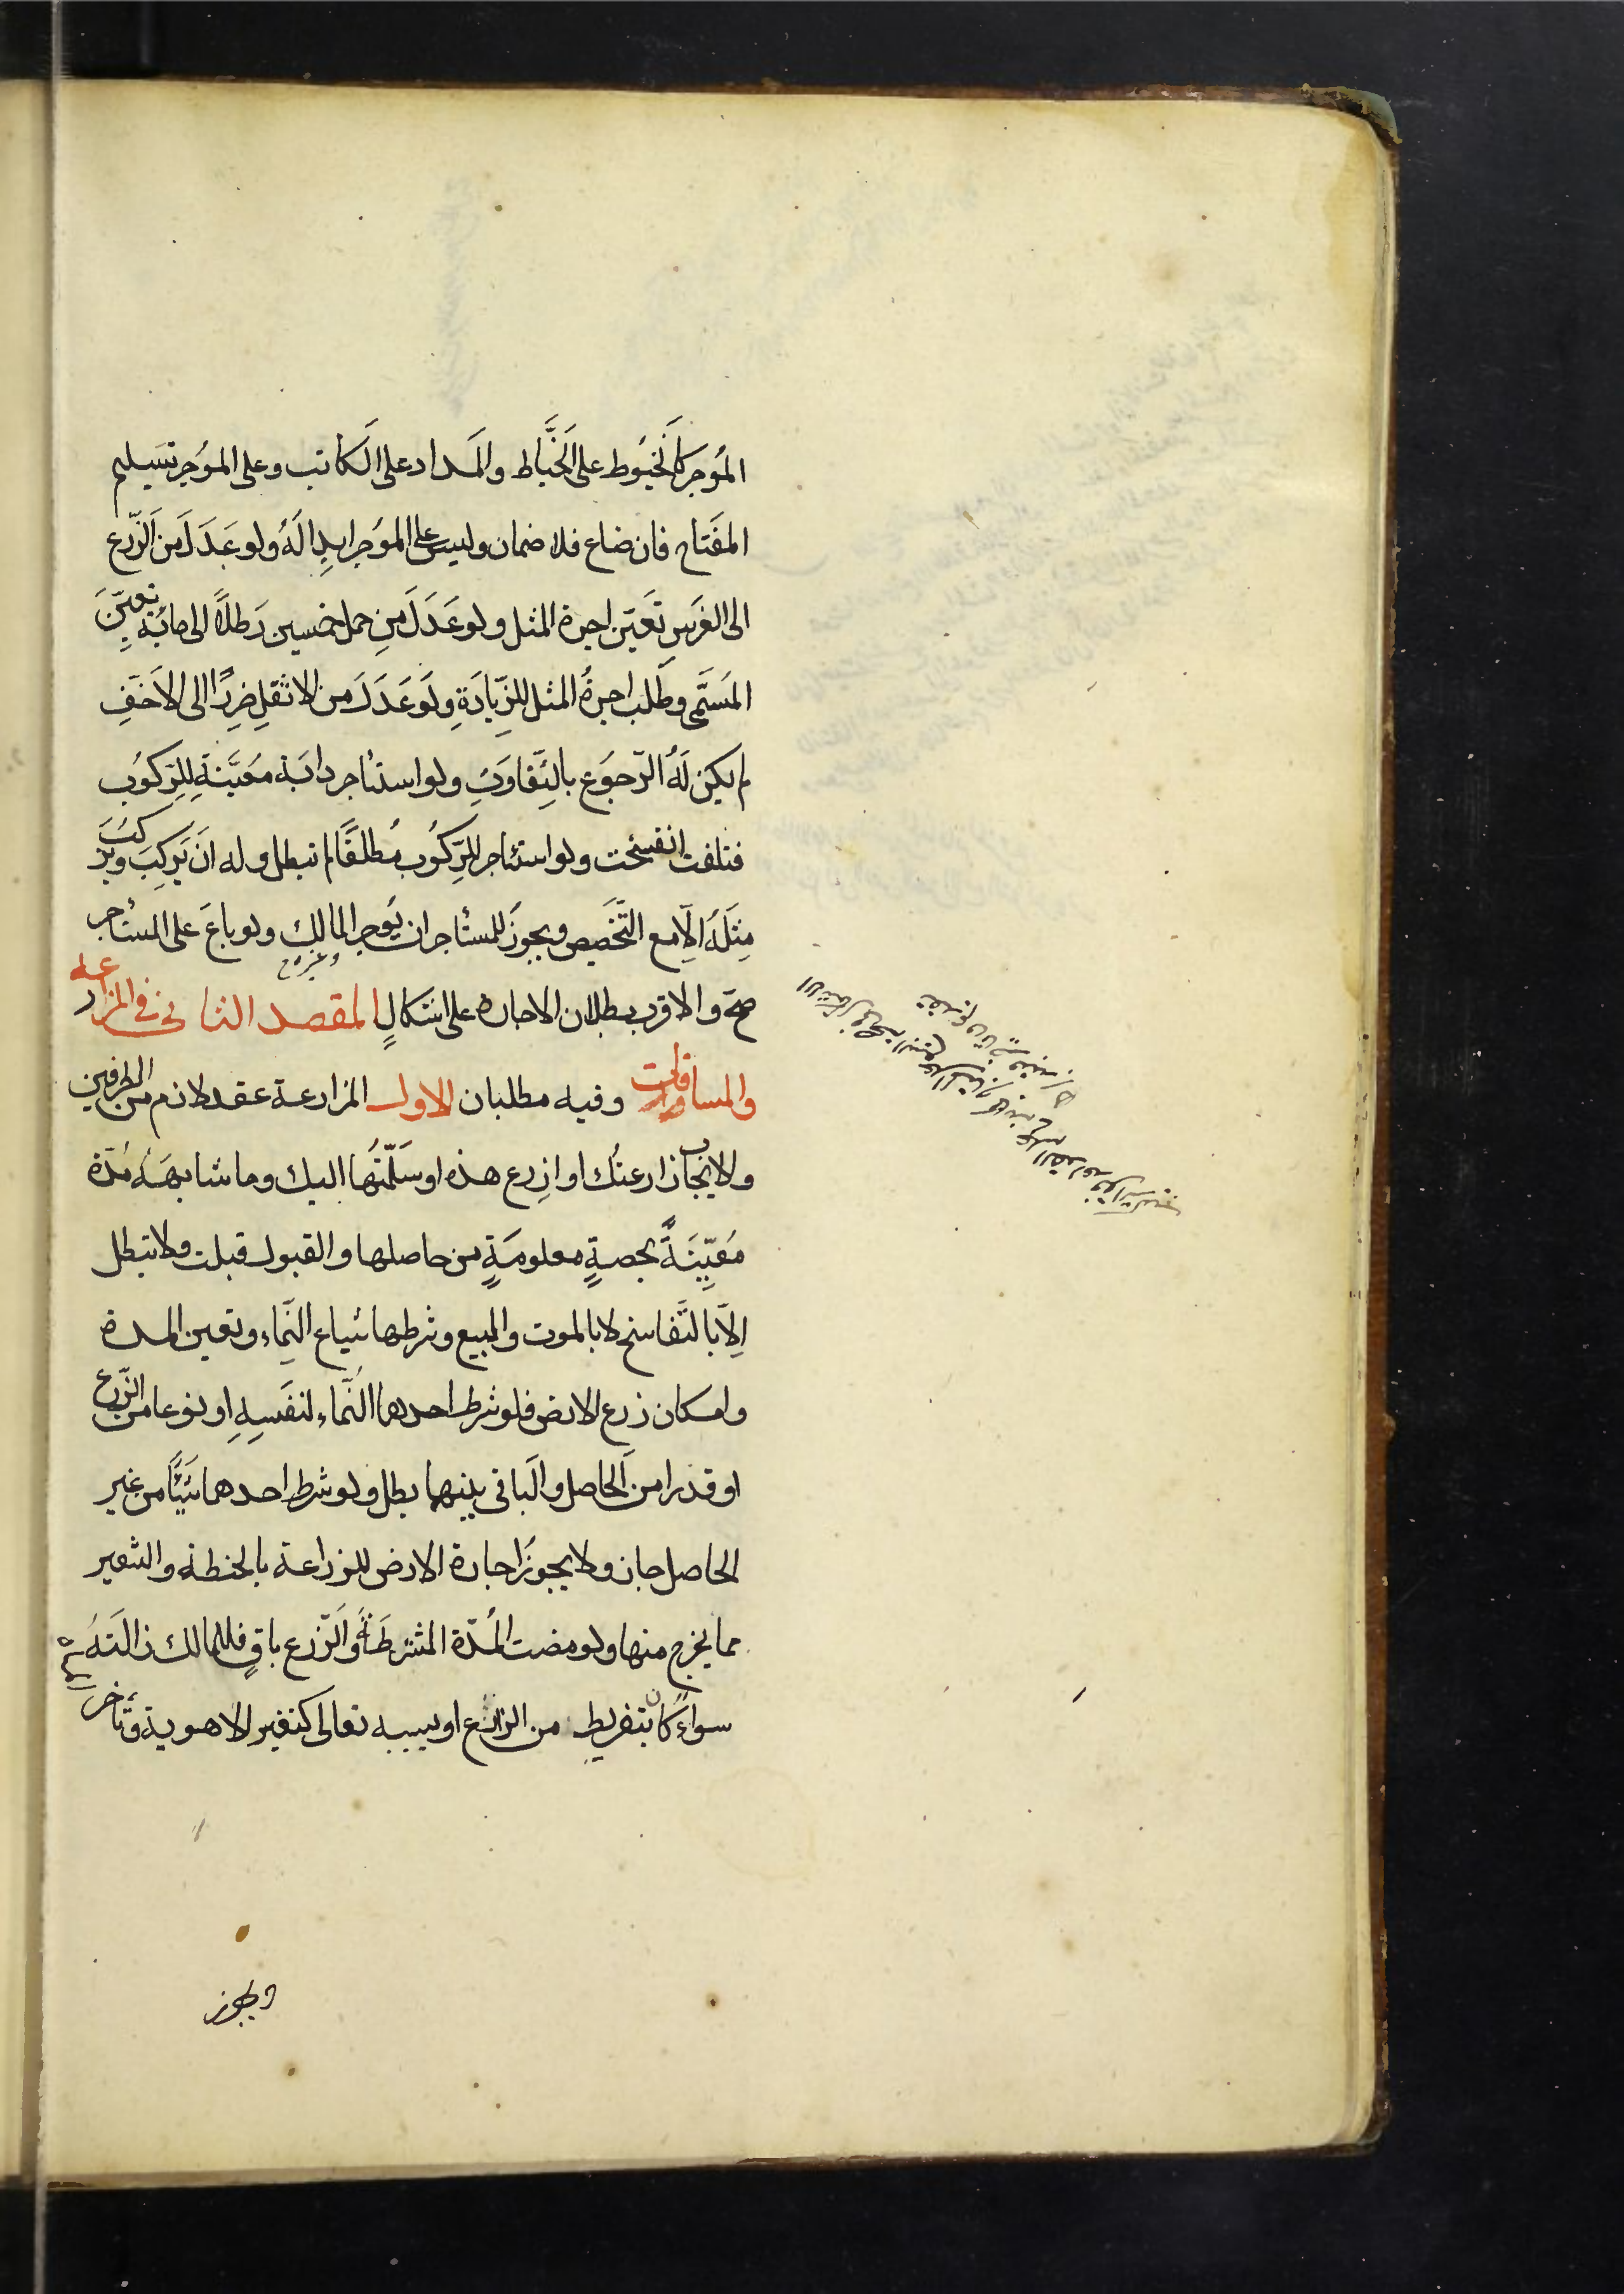 المُوجر كاَلخيُوط على الخَيَّاط والمَداد على الكَاتب وعلى الموُجر تسَليم
المفَتاح فان ضاع فلا ضمان وليس على الموُجر ابدِالهُ ولو عَدَلَ من الَزّرع
الى الغَرسِ تَعَيّن اجرة المثل ولو عَدَلَ مِن حمل خمسين رَطلاً الى مائة تعيّنَ
المَسَمَّى وطَلب اجرةُ المثل للزِّيادَةِ ولَو عَدَلَ من الاثقلِ ضررًا الى الاَخَفِ
لم يكن لَهُ الرّجوَع بالتِّفاوَتِ ولو استئاجر دابَة معَيَّنةِ للرِّكوُبِ
فتلفت انفسَخت ولو استئاجر للرِّكوُب مُطلقًَا لم تبطل وله انَ يَركِبَ ويُركبَ
مِثَلهُ الِاّ مع التَّخَصيص ويجوزَ للمستُاجر ان يُوجر المالِك وغيره ولو باعَ على المستُاجر
صح والاقرب بطلان الاجارة على اشكالٍ المقصد الثانى فى المزارعه
والمساقات وفيه مطلبان الاول المزارعة عقد لازم من الطرفين
والايجاب زارعتُك او ازِرع هذه او سَلَّمتُها اليك وما شابهَهُ مُدّة
مُعَيِّنَةً بحصةٍ معلومَةٍ من حاصلها والقبول قبلت ولا تبطل
اِلاّ باَلتَّفاسخ لا بالموت والبيع وشرطها شياع النَّماء وتعين المدة
وامكان زرع الارض فلو شرط احدهما النَّماء لنفَسِهِ او نوعا من الزّرع
او قدرا من الَحاصل والَباقى بينهما بطل ولو شرط احدهما شَيًئا من غير
الحاصل جاز ولا يجوزَ اجارة الارض للزراعة بالحنطة والشعير
مما يخرج منها ولو مضت المُدّة المشترطَةُ وَالَزّرع باقٍ فللمالك ازالَتهُ
سواءً كان بتفريط من الزارع او بسببه تعالى كتغير الاهوية وتأخر